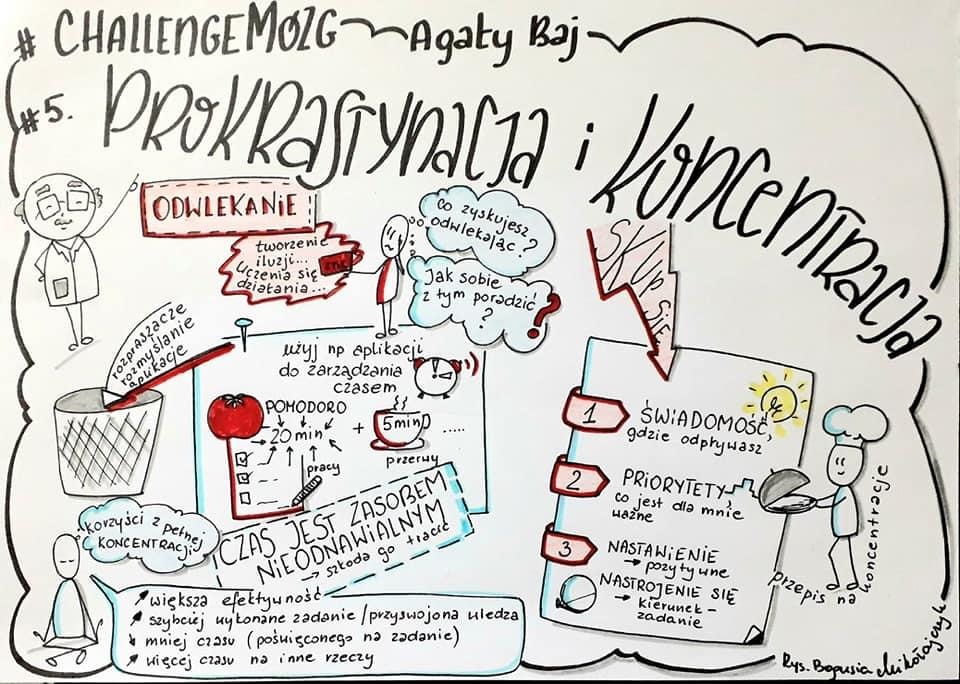 # CHALLENGEMÓZG Agaty Baj
#5. PROKRASTYNACJA i KONCENTRACJA
ODWLEKANIE
tworzenie
iluzji...
uczenia się
działania...
co zyskujesz
odwlekając?
Jak sobie
z tym poradzić
?
SKUP SIĘ
rozpraszacze
rozmyślanie
aplikacje
użyj np aplikacji
do zarządzania
czasem
POMODORO
20 min
pracy
+
5min
.....
przerwy
CZAS JEST ZASOBEM
NIEODNAWIALNYM
→ szkoda go tracić
korzyści z pełnej
KONCENTRACJI
↗ większa efektywność
↗ szybciej wykonane zadanie / przyswojona wiedza
↘ mniej czasu (poświęconego na zadanie)
↗ więcej czasu na inne rzeczy
1 ŚWIADOMOŚĆ,
gdzie odpływasz
2 PRIORYTETY
co jest dla mnie
ważne
3 NASTAWIENIE
→ pozytywne
NASTROJENIE SIĘ
→ kierunek-
zadanie
przepis na
koncentrację
Rys. Bogusia Mikołajczyk